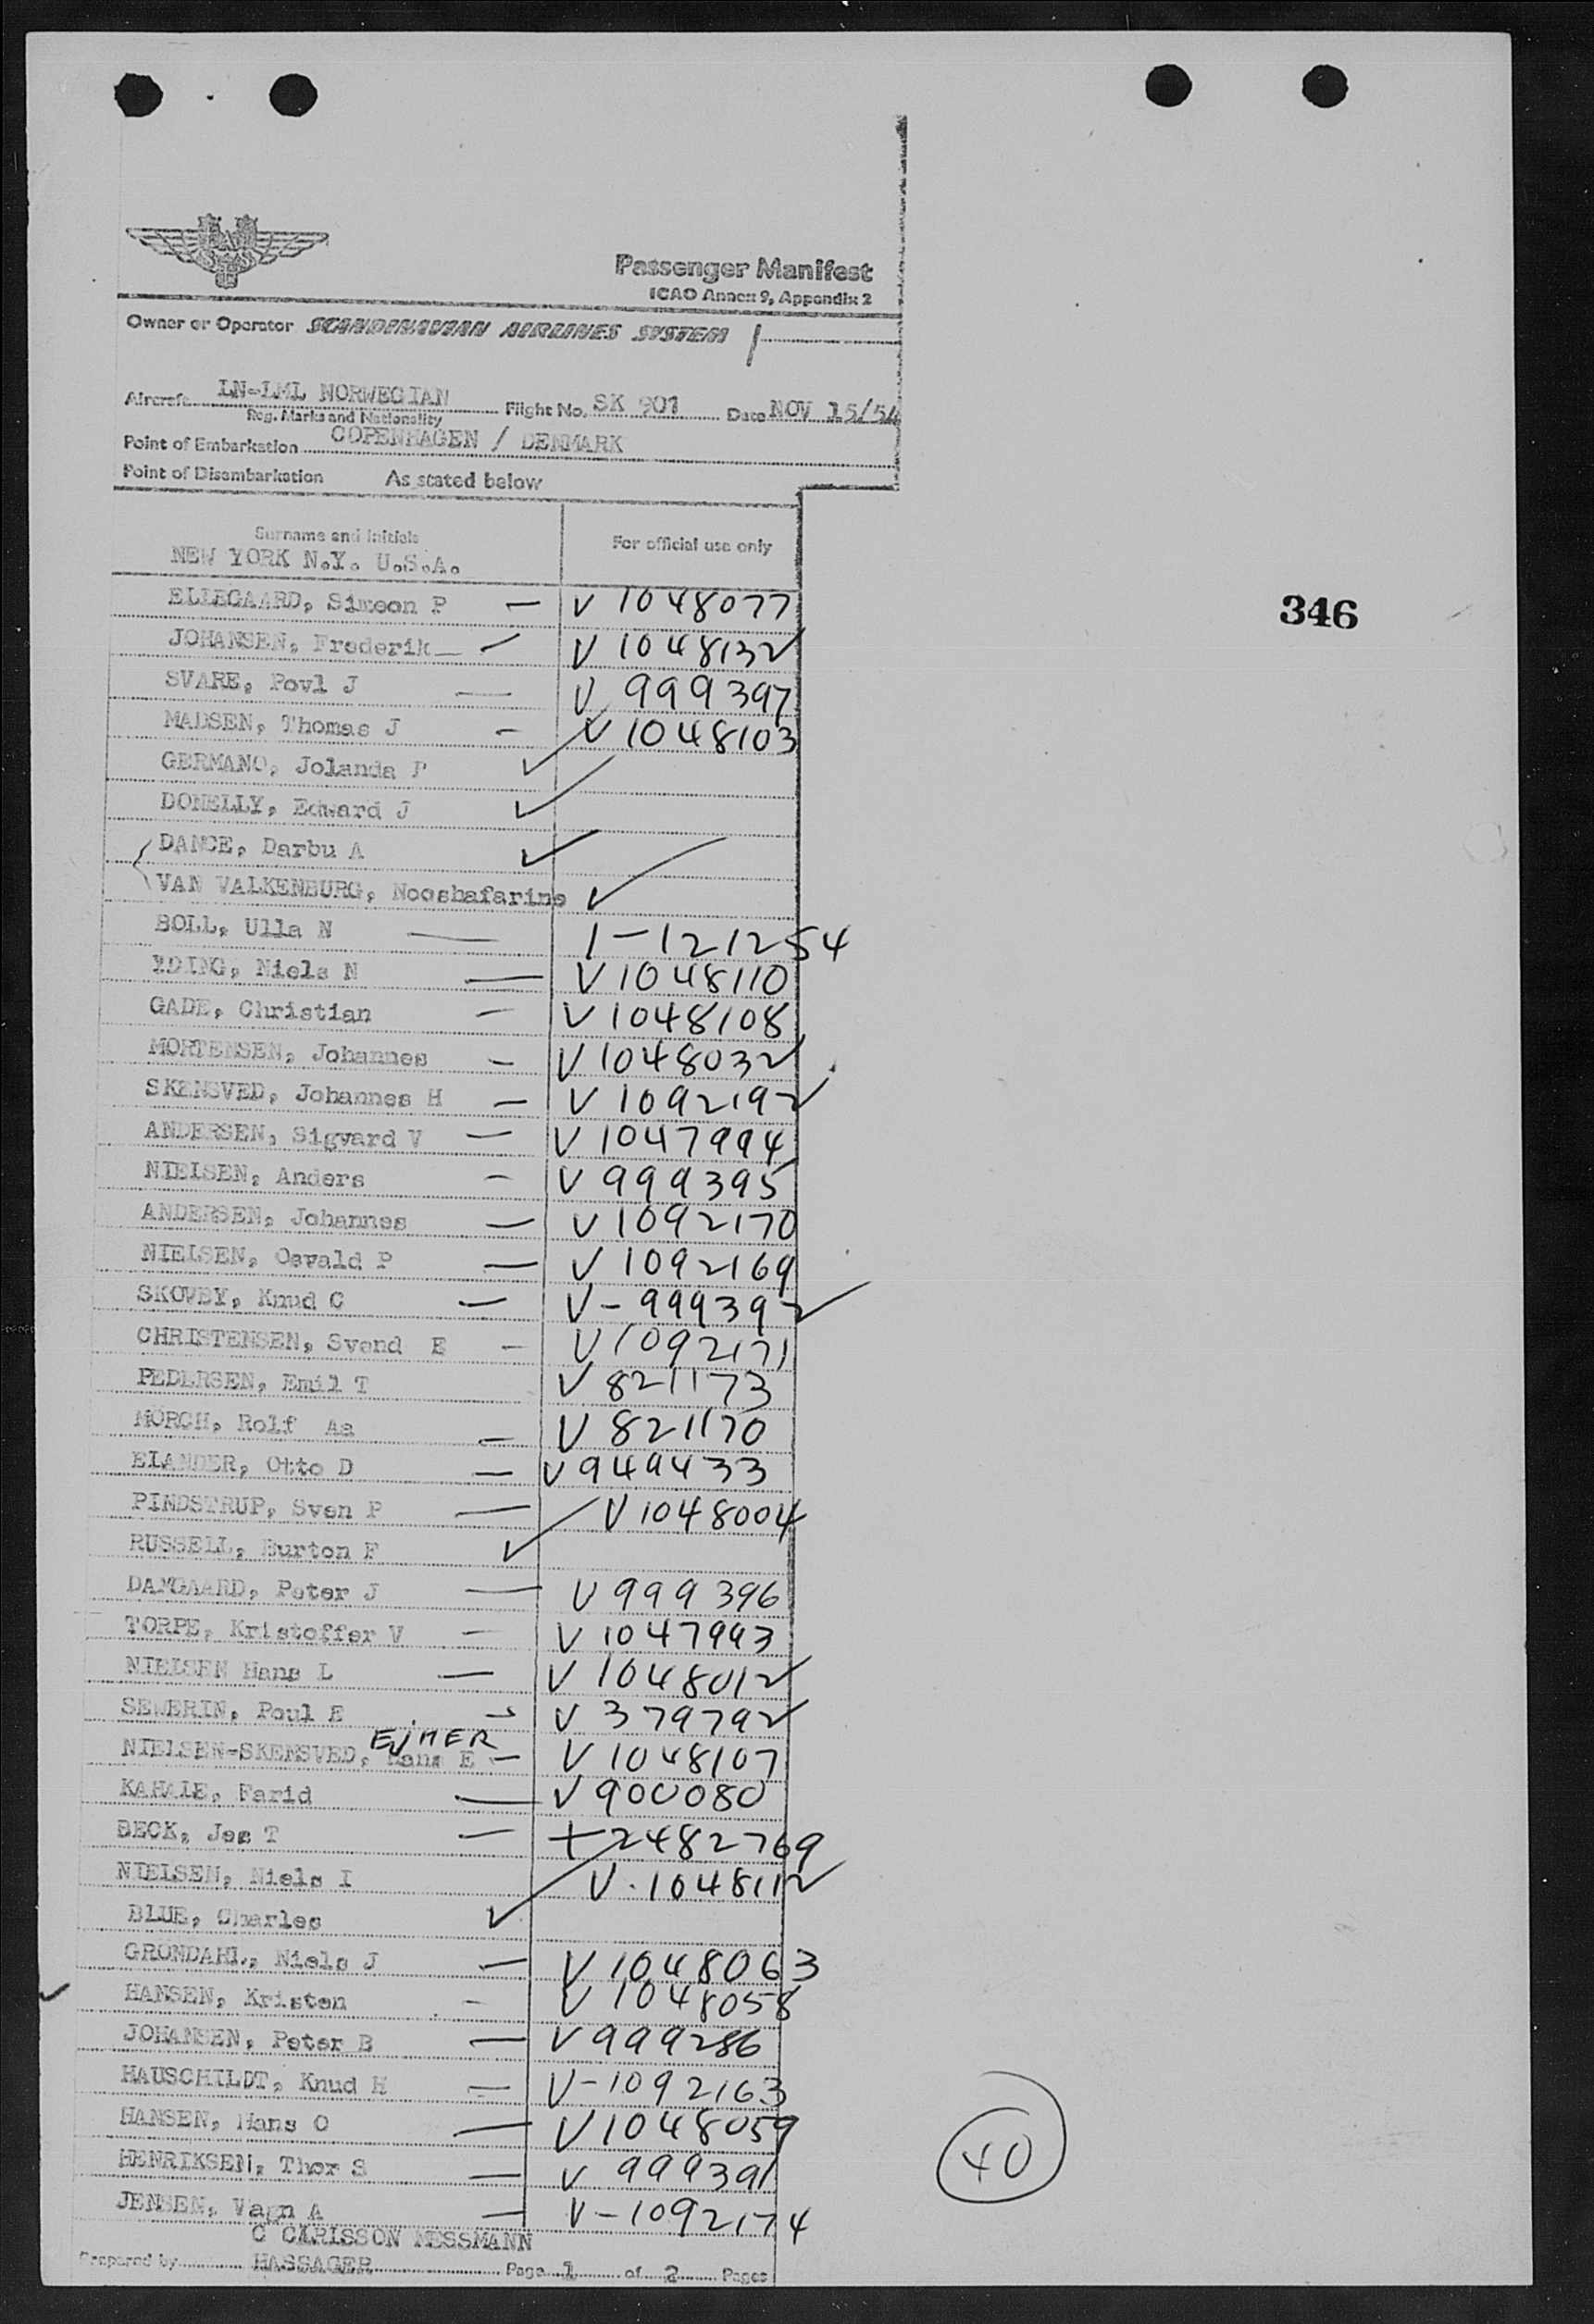 SAS
Passenger Manifest
ICAO Annex 9, Appendix 2
Owner or Operator SCANDINAVIAN AIRLINES SYSTEM
Aircraft LN-LML NORWEGIAN Flight No. SK 901 Date NOV 15/54
Reg. Marks and Nationality
Point of Embarkation COPENHAGEN / DENMARK
Point of Disembarkation As stated below
Surname and Initials For official use only
NEW YORK N.Y. U.S.A.
ELLEGAARD, Simeon P — V 1048077
346
JOHANSEN, Frederik — V 1048132
SVARE, Povl J — V 999397
MADSEN, Thomas J — V 1048103
GERMANO, Jolanda P ✓
DONELLY, Edward J ✓
DANCE, Darbu A ✓
VAN VALKENBURG, Nooshafarine ✓
BOLL, Ulla N — 1-121254
YDING, Niels N — V 1048110
GADE, Christian — V 1048108
MORTENSEN, Johannes — V 1048032
SKENSVED, Johannes H — V 1092192
ANDERSEN, Sigvard V — V 1047994
NIELSEN, Anders — V 999395
ANDERSEN, Johannes — V 1092170
NIELSEN, Osvald P — V 1092169
SKOVBY, Knud C — V-999392
CHRISTENSEN, Svend E — V 1092171
PEDERSEN, Emil T V 821173
MORCH, Rolf Aa — V 821170
ELANDER, Otto D — V 949433
PINDSTRUP, Sven P — V 1048004
RUSSELL, Burton F ✓
DAMGAARD, Peter J — V 999396
TORPE, Kristoffer V — V 1047993
NIELSEN Hans L — V 1048012
SEWERIN, Poul E — V 379792
EJNER
NIELSEN-SKENSVED, Hans E — V 1048107
KAHALE, Farid — V 900080
BECK, Jes T — +2482769
NIELSEN, Niels I V.1048112
BLUE, Charles ✓
GRONDAHL, Niels J — V 1048063
HANSEN, Kristen — V 1048058
JOHANSEN, Peter B — V 999286
HAUSCHILDT, Knud H — V-1092163
HANSEN, Hans O — V 1048059
HENRIKSEN, Thor S — V 999391
40
JENSEN, Vagn A — V-1092174
C CARISSON MESSMANN
Prepared by HASSAGER Page 1 of 2 Pages